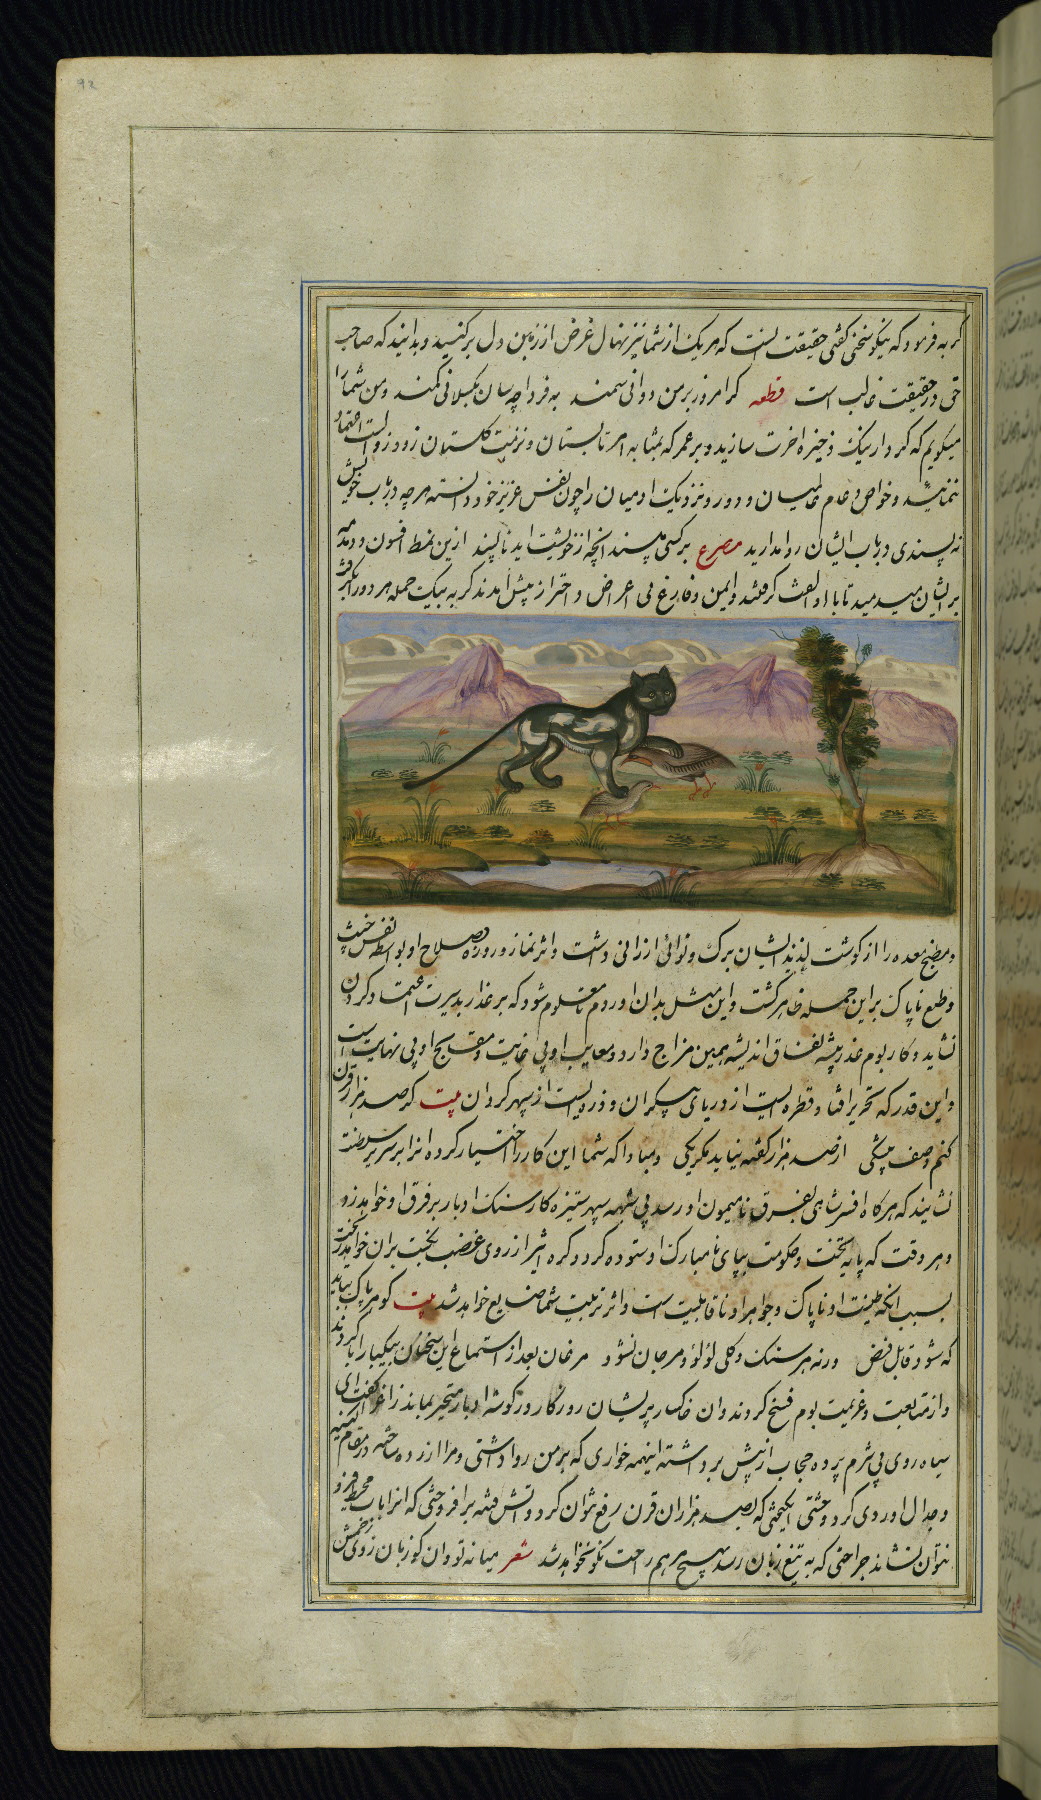 ۹۲
کربه فرمود که نیکو سخنی کفتی حقیقت انست که هر یک از شما نیز نهال غرض از زمین دل برکنید و بدانید که صاحب
حق در حقیقت غالب است قطعه کر امروز بر من دوانی سمند به فردا چه سان بکسلانی کمند و من شما را
میکویم که کردار نیک ذخیره اخرت سازید و بر عمر که بمثابه ابر تابستان و نزهت کلستان زود زوالست اعتماد
ننمائید و خواص و عام عالمیان و دور و نزدیک ادمیان را چون نفس عزیز خود دانسته هر چه در باب خویش
نه پسندی در باب ایشان روا مدارید مصرع بر کسی مپسند انچه از خویشت اید ناپسند ازین نمط افسون و دمدمه
بر ایشان میدمید تا با او الفت کرفتند و ایمن و فارغ بی اعراض و احتراز پیش امدند کربه بیک حمله هر دو را بکرفت
و مطبخ معده را از کوشت لذیذ ایشان برک و نوائی ارزانی داشت و اثر نماز و روزه و صلاح او بواسطه نفس خبیث
و طبع ناپاک بر این جمله ظاهر کشت و این مثل بدان اوردم تا معلوم شود که بر غدار بدسیرت اعتماد کردن
نشاید و کار بوم غدر پیشه نفاق اندیشه همین مزاج دارد و معایب او بی غایت و مقابح او بی نهایت است
و این قدر که تحریر افتاد قطره ایست از دریای بیکران و ذره ایست از سپهر کردان بیت که صد هزار قرن
کنم وصف پیشکی از صد هزار کفته نیاید مکر یکی و مبادا که شما این کار را اختیار کرده او را بر سریر سلطنت
نشانید که هر کاه افسر شاهی بفرق نامیمون او رسد بی شبهه سپهر ستیزه کار سنک ادبار بر فرق او خواهد زد
و هر وقت که پایه تخت و حکومت بپای نامبارک او ستوده کردد کره اثیر از روی غضب بران خواهد ریخت
بسبب انکه طینت او ناپاک و جواهر او ناقابلیت است و اثر تربیت شما ضایع خواهد شد بیت کوهر پاک بباید
که شود قابل فیض ورنه هر سنک و کلی لؤلؤ و مرجان نشود مرغان بعد از استماع این سخنان بیکبار ابا کردند
و از متابعت و عزیمت بوم فسخ کردند و ان خاکسار پریشان روزکار در کوشه ادبار متحیر بماند زاغ را کفت ای
سیاه روی بی شرم پرده حجاب از پیش برداشته اینهمه خواری که بر من روا داشتی و مرا ازرده ساخته در مقام کینه
و جدال اوردی کرد وحشتی انکیختی که بصد هزاران قرن رفع نتوان کرد و اتش فتنه برافروختی که انرا باب محیط فرو
نتوان نشاند جراحتی که به تیغ زبان رسد بهیچ مرهم راحت نکو نخواهد شد شعر میانه تو و ان کو زبان زدی زخمش